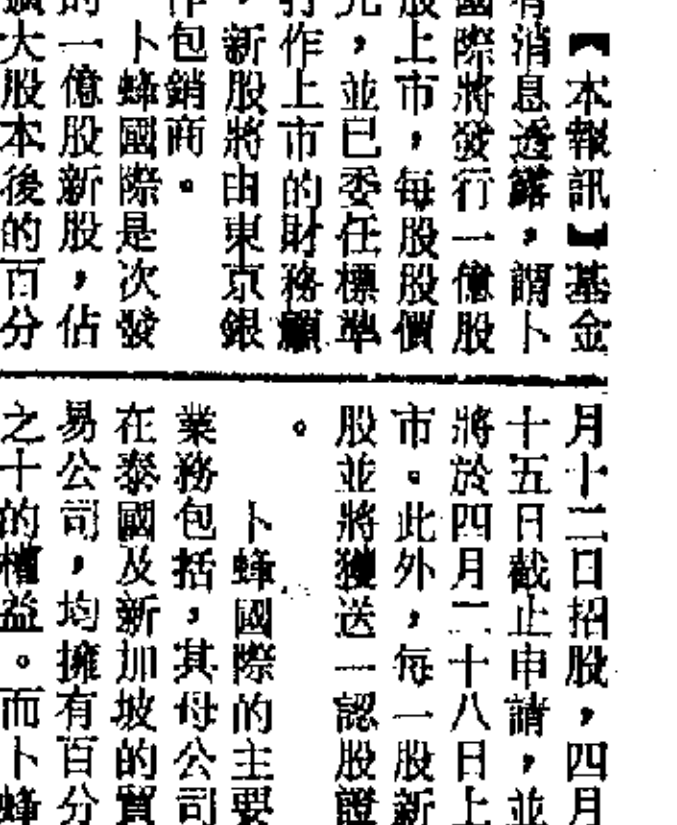 【本報訊】基金
有消息透露,謂卜
國際將發行一億股
股上市,每股股價
元,並已委任標準
打作上市的財務顧
,新股將由東京銀
作包銷商。
卜蜂國際是次發
的一億股新股,佔
擴大股本後的百分
月十二日招股,四月
十五日截止申請,並
將於四月二十八日上
市。此外,每一股新
股並將獲送一認股證
。
卜蜂國際的主要
業務包括,其母公司
在泰國及新加坡的貿
易公司,均擁有百分
之十的權益。而卜蜂